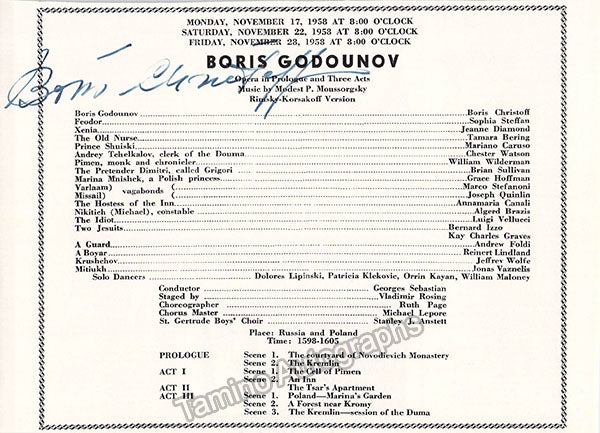 MONDAY, NOVEMBER 17, 1958 AT 8:00 O'CLOCK
SATURDAY, NOVEMBER 22, 1958 AT 8:00 O'CLOCK
FRIDAY, NOVEMBER 28, 1958 AT 8:00 O'CLOCK
BORIS GODOUNOV
Boris Christoff
Opera in Prologue and Three Acts
Music by Modest P. Moussorgsky
Rimsky-Korsakoff Version
Boris Godounov Boris Christoff
Feodor Sophia Steffan
Xenia Jeanne Diamond
The Old Nurse Tamara Bering
Prince Shuiski Mariano Caruso
Andrey Tchelkalov, clerk of the Douma Chester Watson
Pimen, monk and chronicler William Wilderman
The Pretender Dimitri, called Grigori Brian Sullivan
Marina Mnishek, a Polish princess Grace Hoffman
Varlaam) vagabonds ( Marco Stefanoni
Missail) ( Joseph Quinlin
The Hostess of the Inn Annamaria Canali
Nikitich (Michael), constable Algerd Brazis
The Idiot Luigi Vellucci
Two Jesuits Bernard Izzo
Kay Charles Graves
A Guard Andrew Foldi
A Boyar Reinert Lindland
Krushchov Jeffrey Wolfe
Mitiukh Jonas Vaznelis
Solo Dancers Dolores Lipinski, Patricia Klekovic, Orrin Kayan, William Maloney
Conductor Georges Sebastian
Staged by Vladimir Rosing
Choreographer Ruth Page
Chorus Master Michael Lepore
St. Gertrude Boys' Choir Stanley J. Anstett
Place: Russia and Poland
Time: 1598-1605
PROLOGUE Scene 1. The courtyard of Novodievich Monastery
Scene 2. The Kremlin
ACT I Scene 1. The Cell of Pimen
Scene 2. An Inn
ACT II The Tsar's Apartment
ACT III Scene 1. Poland—Marina's Garden
Scene 2. A Forest near Kromy
Scene 3. The Kremlin—session of the Duma
Tamino Autographs